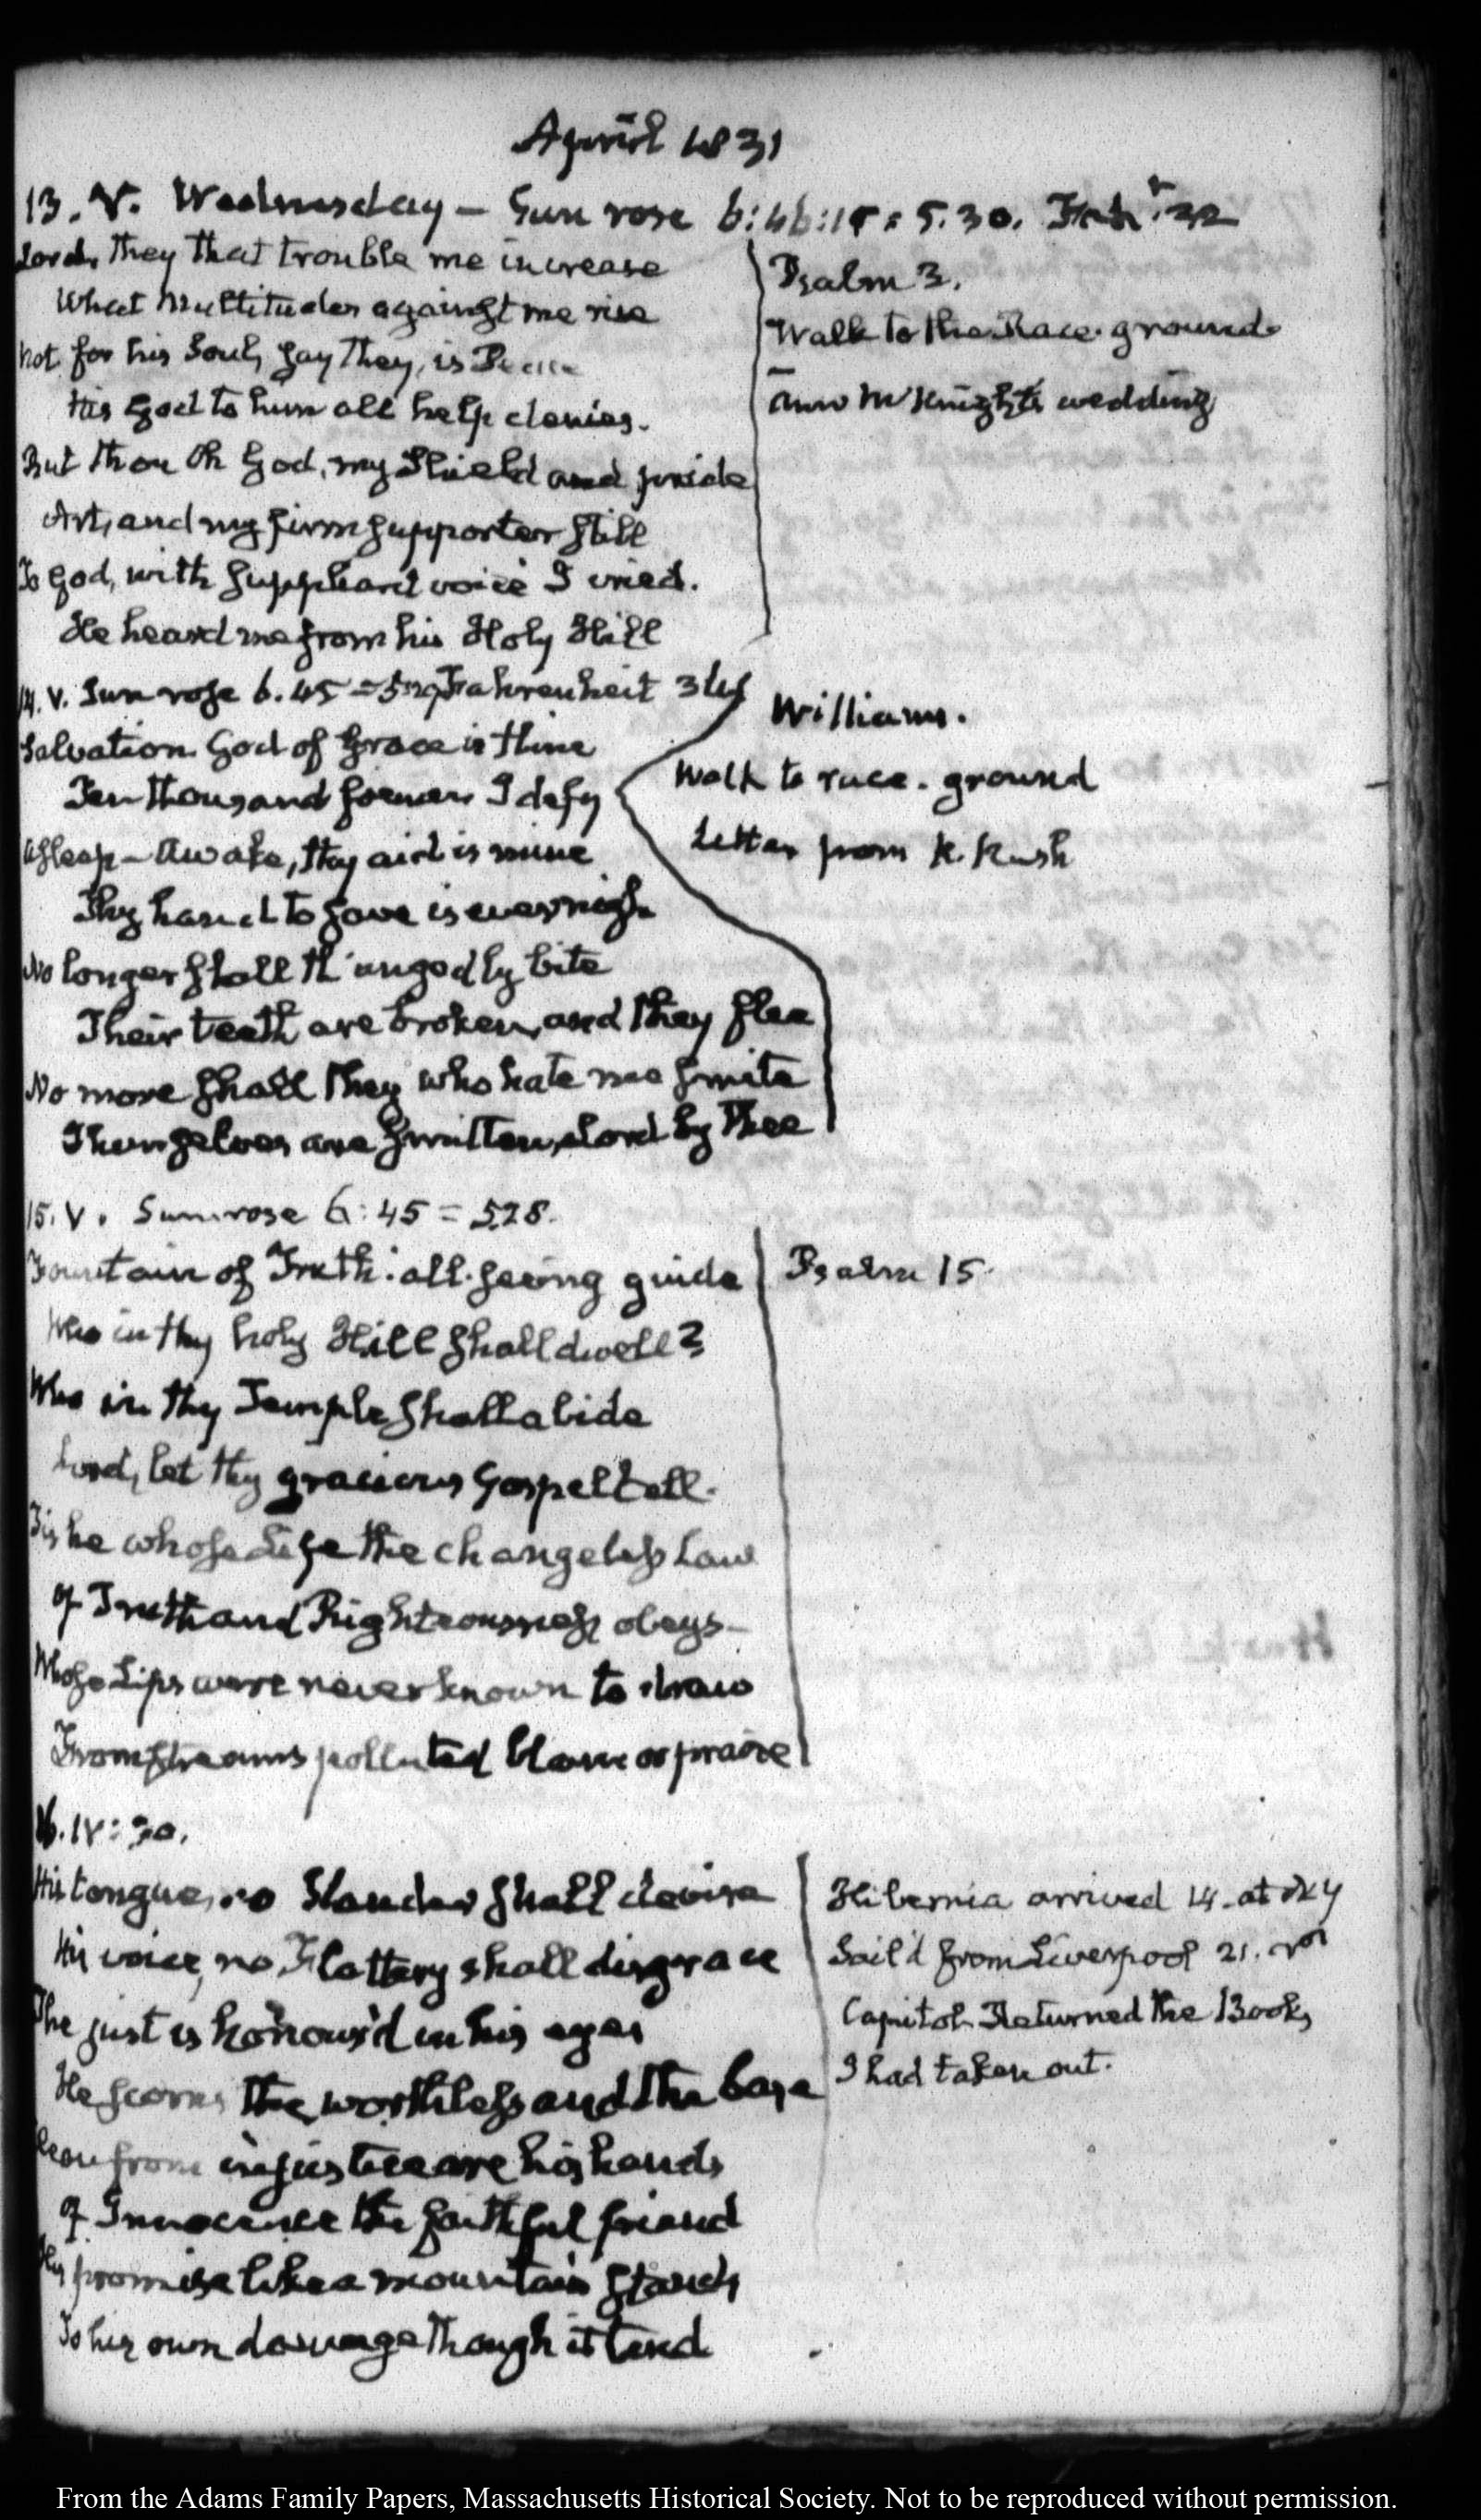 April 1831
13. V. Wednesday – Sun rose 6:46:15 = 5.30. Fah.t 32
Lord, they that trouble me increase
What Multitudes against me rise
Not for his Soul, say they, is Peace
His God to him all help denies.
But thou Oh God, my Shield and pride
Art, and my firm supporter still
To God, with suppliant voice I cried.
He heard me from his Holy Hill
Psalm 3.
Walk to the Race-ground
Ann McKnight's wedding
14. V. Sun rose 6.45 = 529 Fahrenheit
Salvation God of Grace is thine
Ten thousand foemen I defy
Asleep – Awake, thy aid is mine
Thy hand to save is ever nigh
No longer shall th'ungodly bite
Their teeth are broken, and they flee
No more shall they who hate me smite
Themselves are smitten, Lord by Thee
Williams.
Walk to race-ground
Letter from R. Rush
15. V. Sun rose 6:45 = 528.
Fountain of Truth: all-seeing guide
Who in thy holy Hill shall dwell?
Who in thy Temple shall abide
Lord, let thy gracious Gospel tell.
Tis he whose Life the changeless Law
of Truth and Righteousness obeys–
Whose Lips were never known to draw
From streams polluted blame or praise
Psalm 15.
16. IV:30.
His tongue, no Slander shall devise
His voice, no Flattery shall disgrace
The just is honour'd in his eyes
He scorns the worthless and the base
Clean from injustice are his hands
of Innocence the faithful friend
His promise like a mountain stands
To his own damage though it tend
Hibernia arrived 14. at NY
Sail'd from Liverpool 21.
Capitol. Returned the Books
I had taken out.
From the Adams Family Papers, Massachusetts Historical Society. Not to be reproduced without permission.